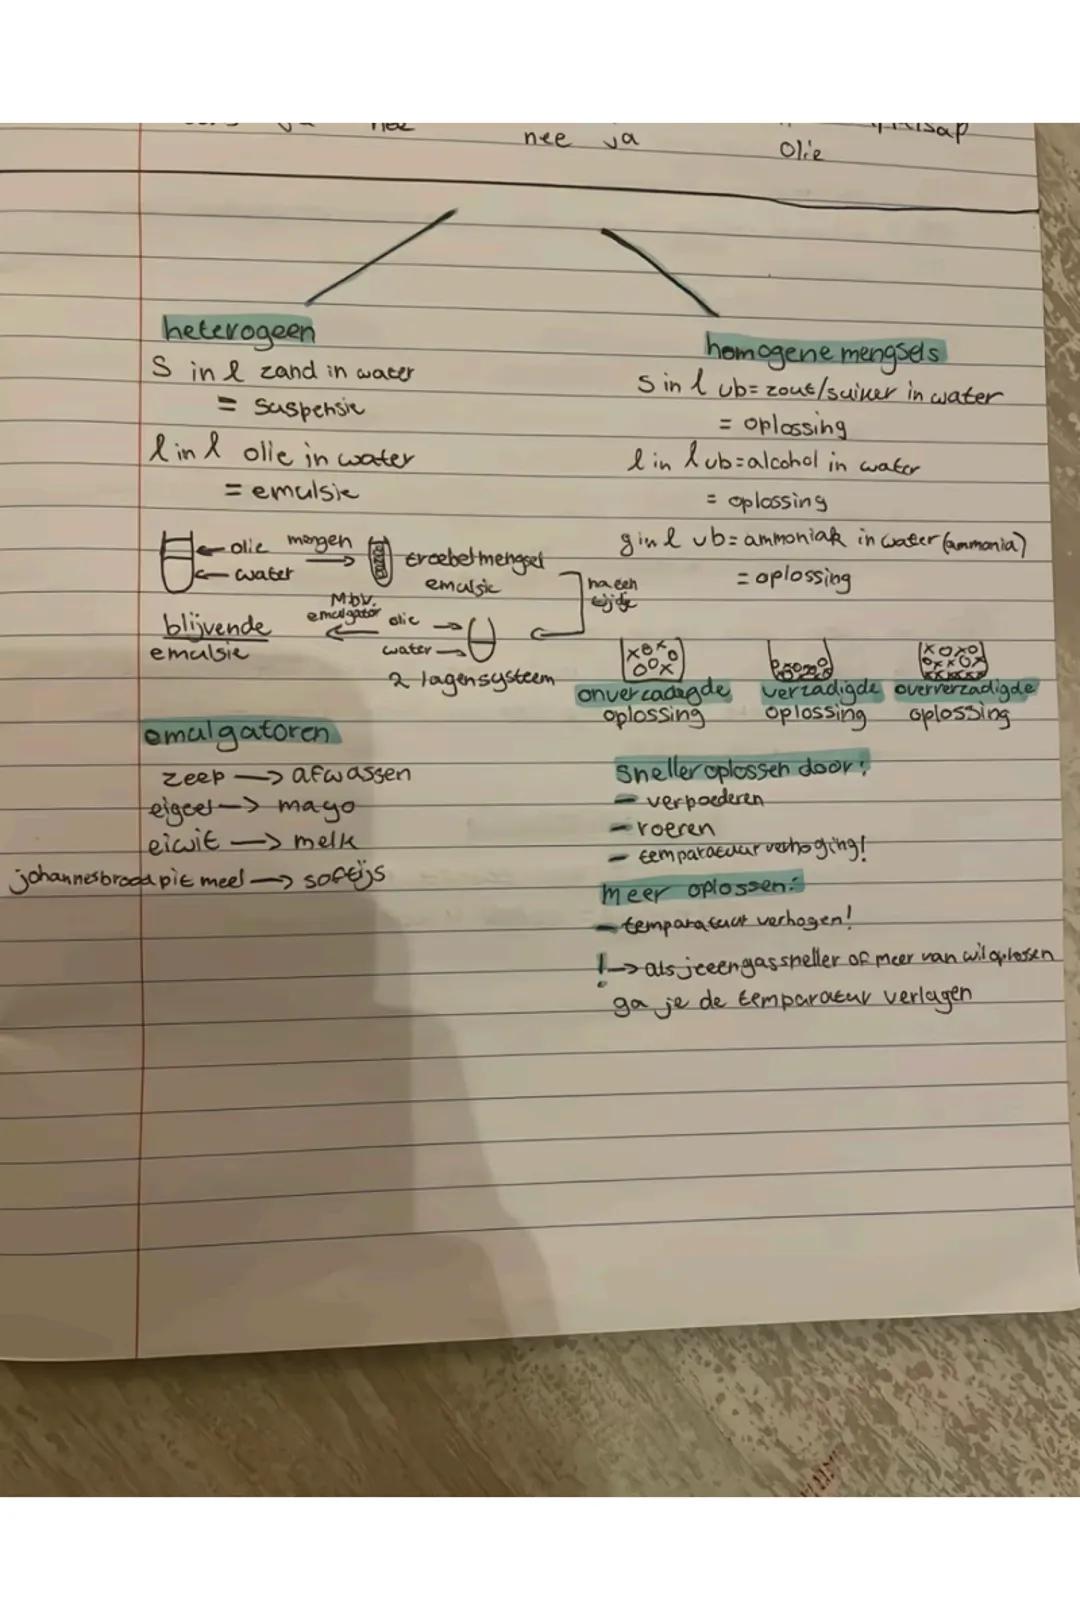 nee ja
Olie
heterogeen
S in l zand in water
= suspensie
l in l olie in water
= emulsie
olie mengen
water
troebel mengsel
emulsie
na een
tijdje
M.b.v.
emulgator
olie
water
2 lagensysteem
blijvende
emulsie
emulgatoren
zeep → afwassen
eigeel → mayo
eiwit → melk
johannesbrood pit meel → softijs
homogene mengsels
S in l vb= zout/suiker in water
= oplossing
l in l vb=alcohol in water
= oplossing
g in l vb= ammoniak in water (ammonia)
= oplossing
onverzadigde
oplossing
verzadigde
oplossing
oververzadigde
oplossing
Sneller oplossen door:
- verpoederen
- roeren
- temparatuur verhoging!
Meer oplossen:
- temparatuur verhogen!
! → als je een gas sneller of meer van wil oplossen
ga je de temparatuur verlagen